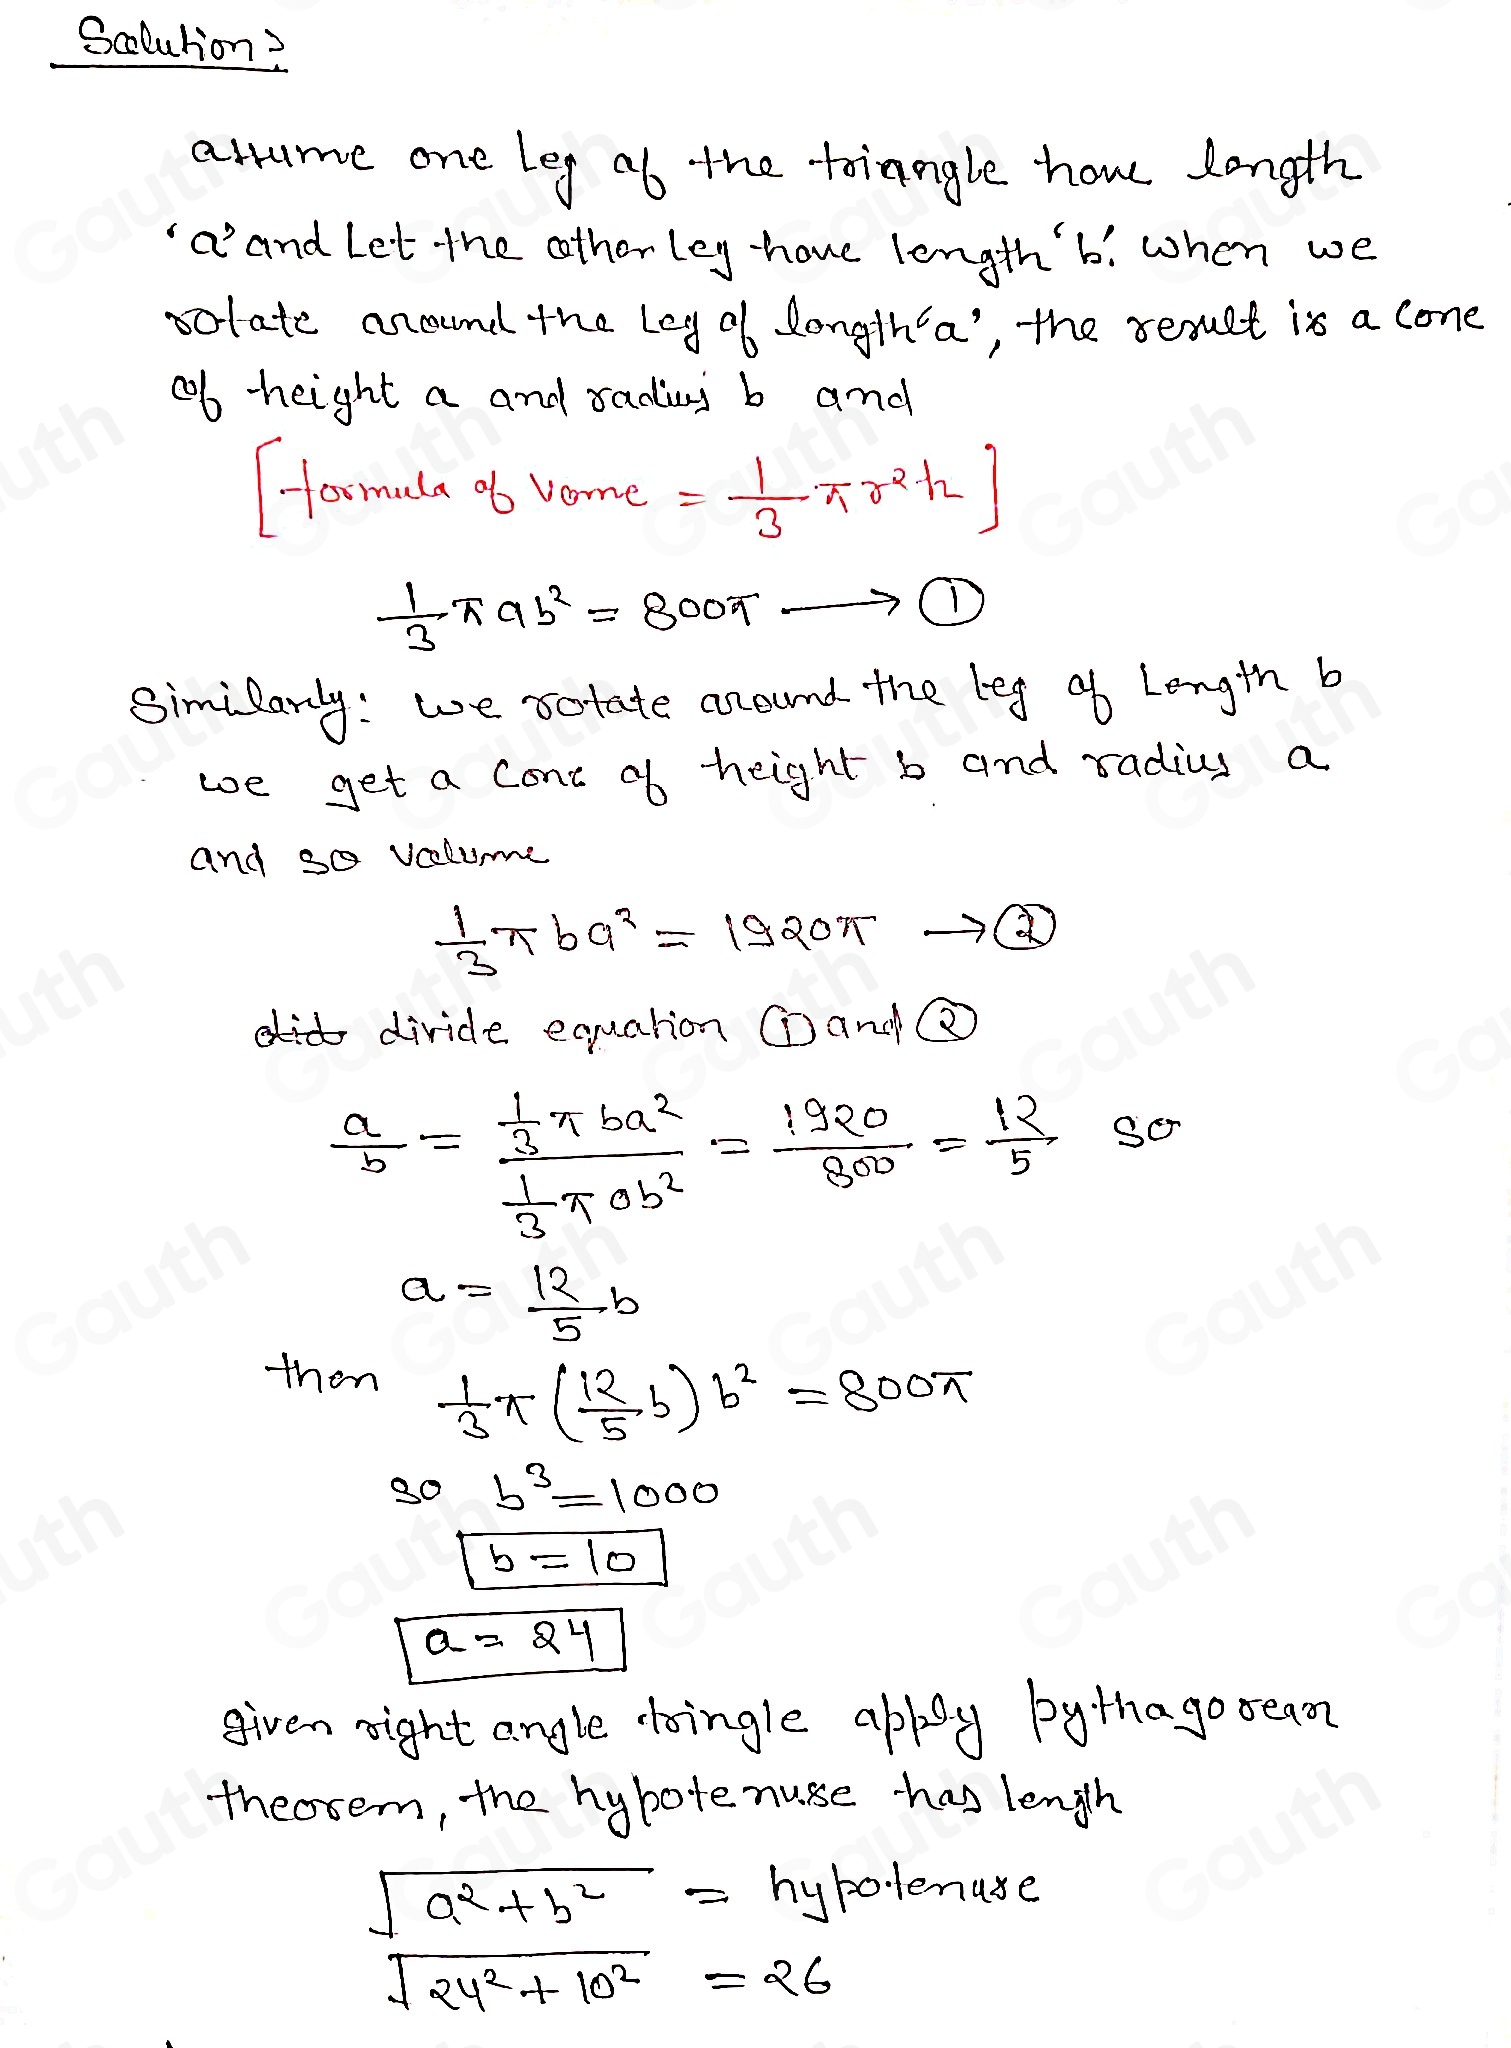 Solution:
assume one Leg of the triangle have length
'a' and Let the other leg have length 'b'. When we
rotate around the leg of length 'a', the result is a cone
of height a and radius b and
[formula of Vome = 1/3 πr²h]
1/3 πab² = 800π → ①
Similarly: we rotate around the leg of Length b
we get a Cone of height b and radius a
and so volume
1/3 πba² = 1920π → ②
divide equation ① and ②
a/b = (1/3 πba²)/(1/3 πab²) = 1920/800 = 12/5 so
a = 12/5 b
then 1/3 π(12/5 b)b² = 800π
so b³ = 1000
b = 10
a = 24
given right angle tringle apply pythagorean
theorem, the hypotenuse has length
√(a² + b²) = hypotenuse
√(24² + 10²) = 26